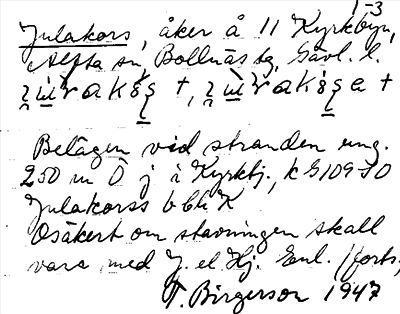 1-3
Julakors, åker å 11 Kyrkbyn,
Alfta sn, Bollnäs tg, Gävl. l.
Belägen vid stranden ung.
250 m Ö j å Kyrkbj., k G 109 70
Julakorss b bli K
Osäkert om stavningen skall
vara med J. el Hj. Enl. /forts.
T. Birgerson 1947